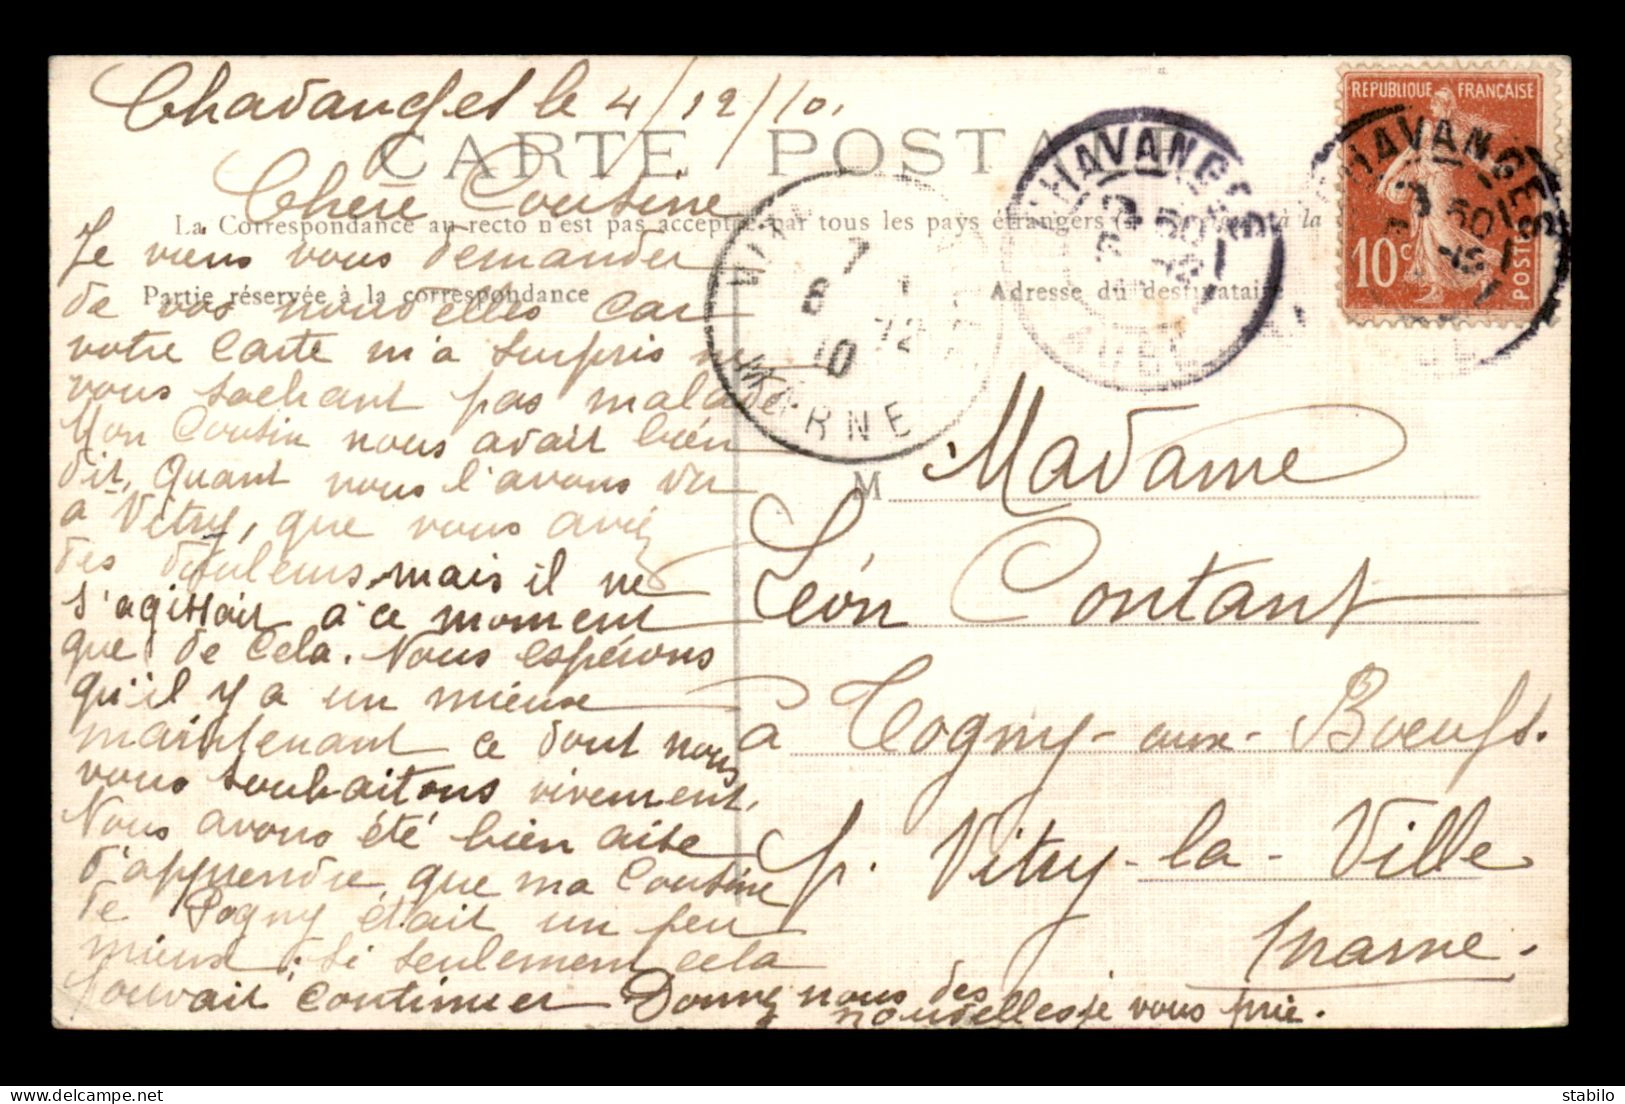 Chavanges le 4/12/10.
CARTE POSTA
Chère Cousine
La Correspondance au recto n'est pas acceptée par tous les pays étrangers à la
Je viens vous demander
Partie réservée à la correspondance
Adresse du destinataire
de vos nouvelles car
votre carte m'a surpris ne
vous sachant pas malade.
Mon Cousin nous avait bien
dit, Quant nous l'avons vu
à Vitry, que vous aviez
des douleurs, mais il ne
s'agissait à ce moment
que de cela. Nous espérons
qu'il y a un mieux
maintenant ce dont nous
vous souhaitons vivement.
Nous avons été bien aise
d'apprendre que ma Cousine
de Pogny était un peu
mieux. Si seulement cela
pouvait continuer Donnez nous des
nouvelles je vous prie.
REPUBLIQUE FRANÇAISE
10c
POSTES
CHAVANGES
AUBE
CHAVANGES
7
8
12
10
MARNE
M
Madame
Léon Contant
à Togny-aux-Boeufs.
p. Vitry-la-Ville
Marne.
delcampe.net
stabilo